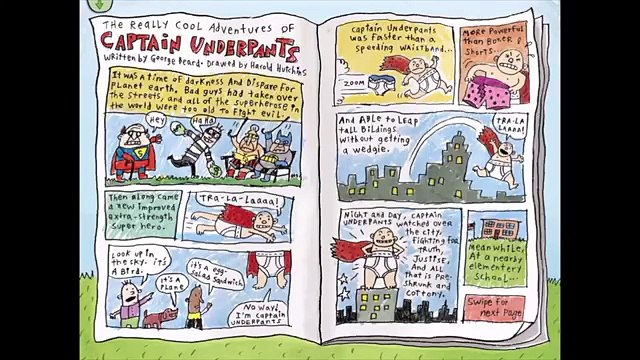 THE REALLY COOL ADVENTURES OF
CAPTAIN UNDERPANTS
Written by George Beard. Drawed by Harold Hutchins
It was a time of darkness And Dispare for
Planet earth. Bad guys had taken over
the streets, and all of the superherose in
the world were too old to Fight evil!
Hey
Ha Ha
Then along came
a new improved
extra-strength
Super hero.
TRA-La-Laaaa!
Look up in
the sky. it's
A Bird.
it's A
PLANE
it's a egg-
salad sandwich
No way!
I'm Captain
UNDERPANTS
Captain Underpants
was Faster than a
speeding waistband...
ZOOM
MORE Powerful
than Boxer
Shorts...
And ABle to Leap
tall Bildings
without getting
a wedgie.
TRA-LA
LAAAA!
Night and Day, Captain
UNDERPANTS watched over
the city,
fighting for
truth,
Justise,
And All
that is Pre-
shrunk and
cottony.
Mean while,
At a nearby
elementery
School...
Swipe for
next Page